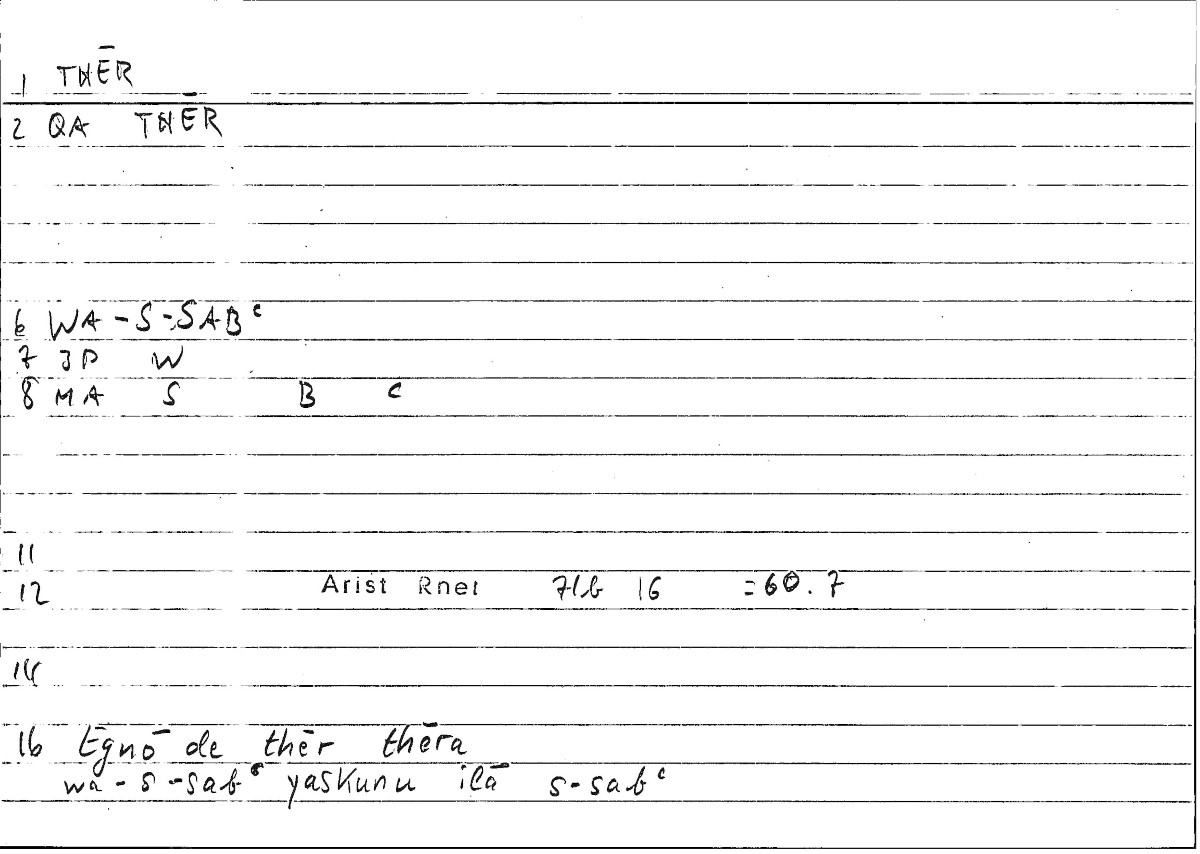 1 THĒR
2 QA THĒR
6 WA-S-SABᶜ
7 JP W
8 MA S B ᶜ
11
12 Arist Rhet 71b 16 =60.7
14
16 Egnō de thēr thēra
wa-s-sabᶜ yaskunu ilā s-sabᶜ